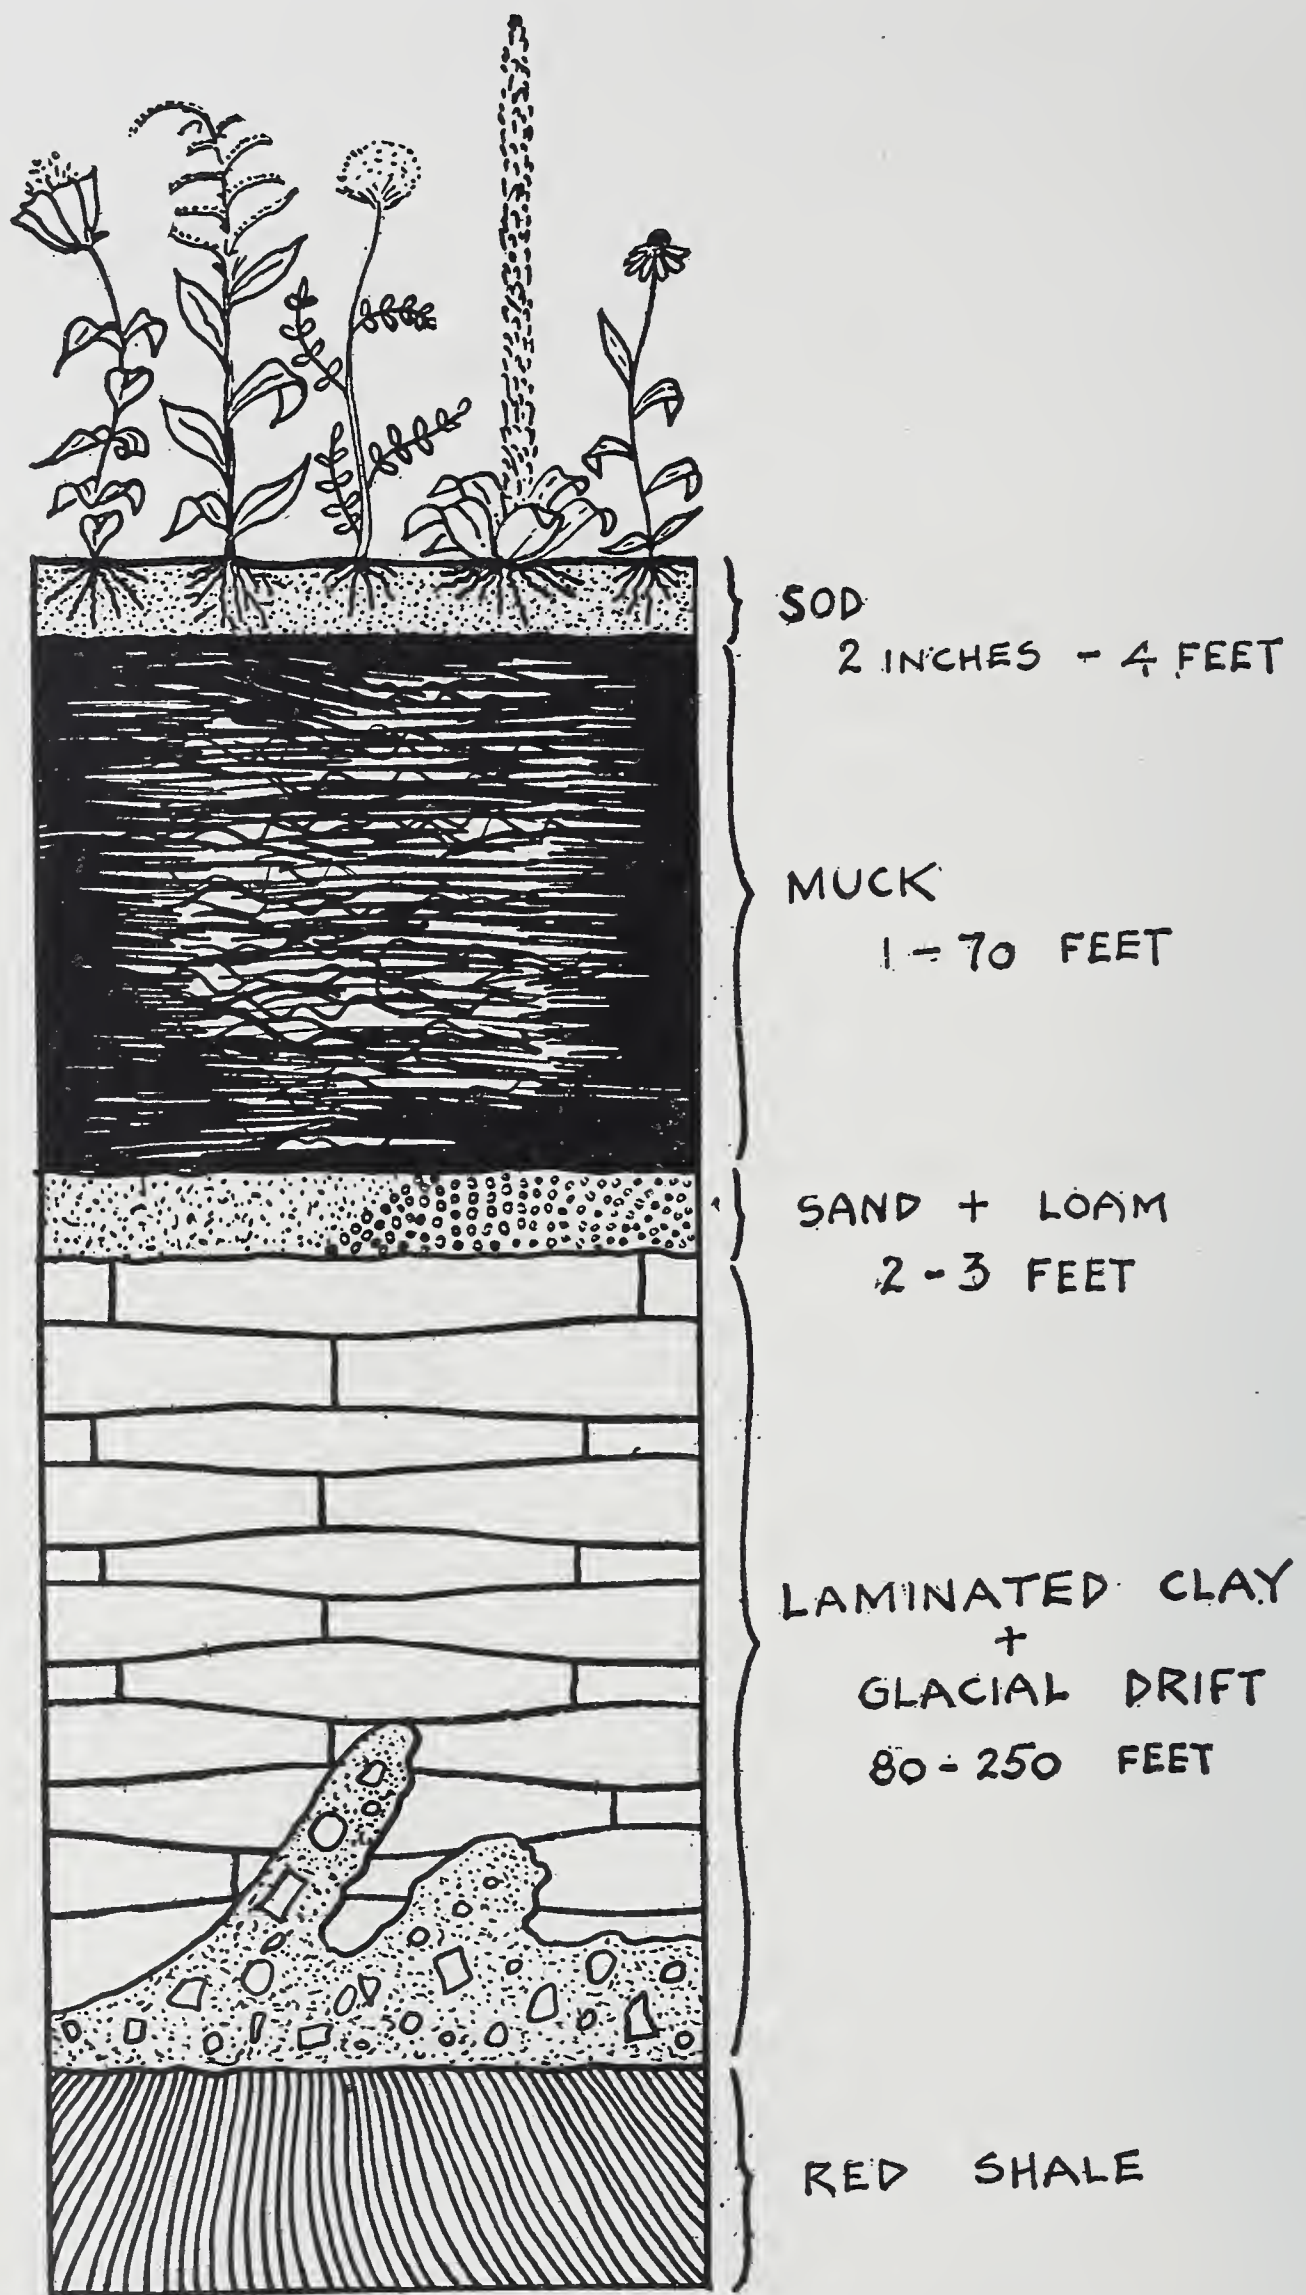 SOD
2 INCHES - 4 FEET
MUCK
1 - 70 FEET
SAND + LOAM
2 - 3 FEET
LAMINATED CLAY
+
GLACIAL DRIFT
80 - 250 FEET
RED SHALE